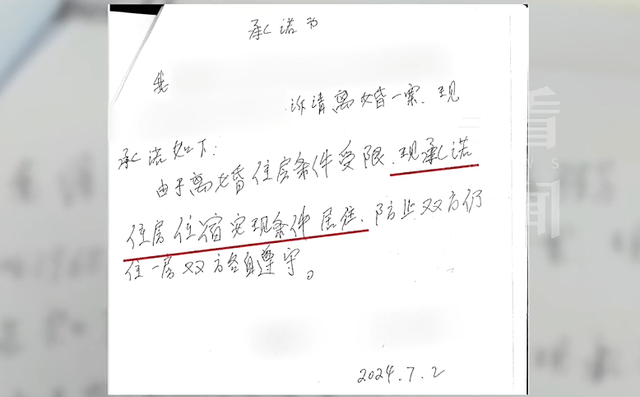 承诺书
我
诉请离婚一案、现
承诺如下:
由于离婚住房条件受限、现承诺
住房住宿实现条件居住、防止双方仍
住一房双方各自遵守。
2024.7.2
看
NEWS
闻